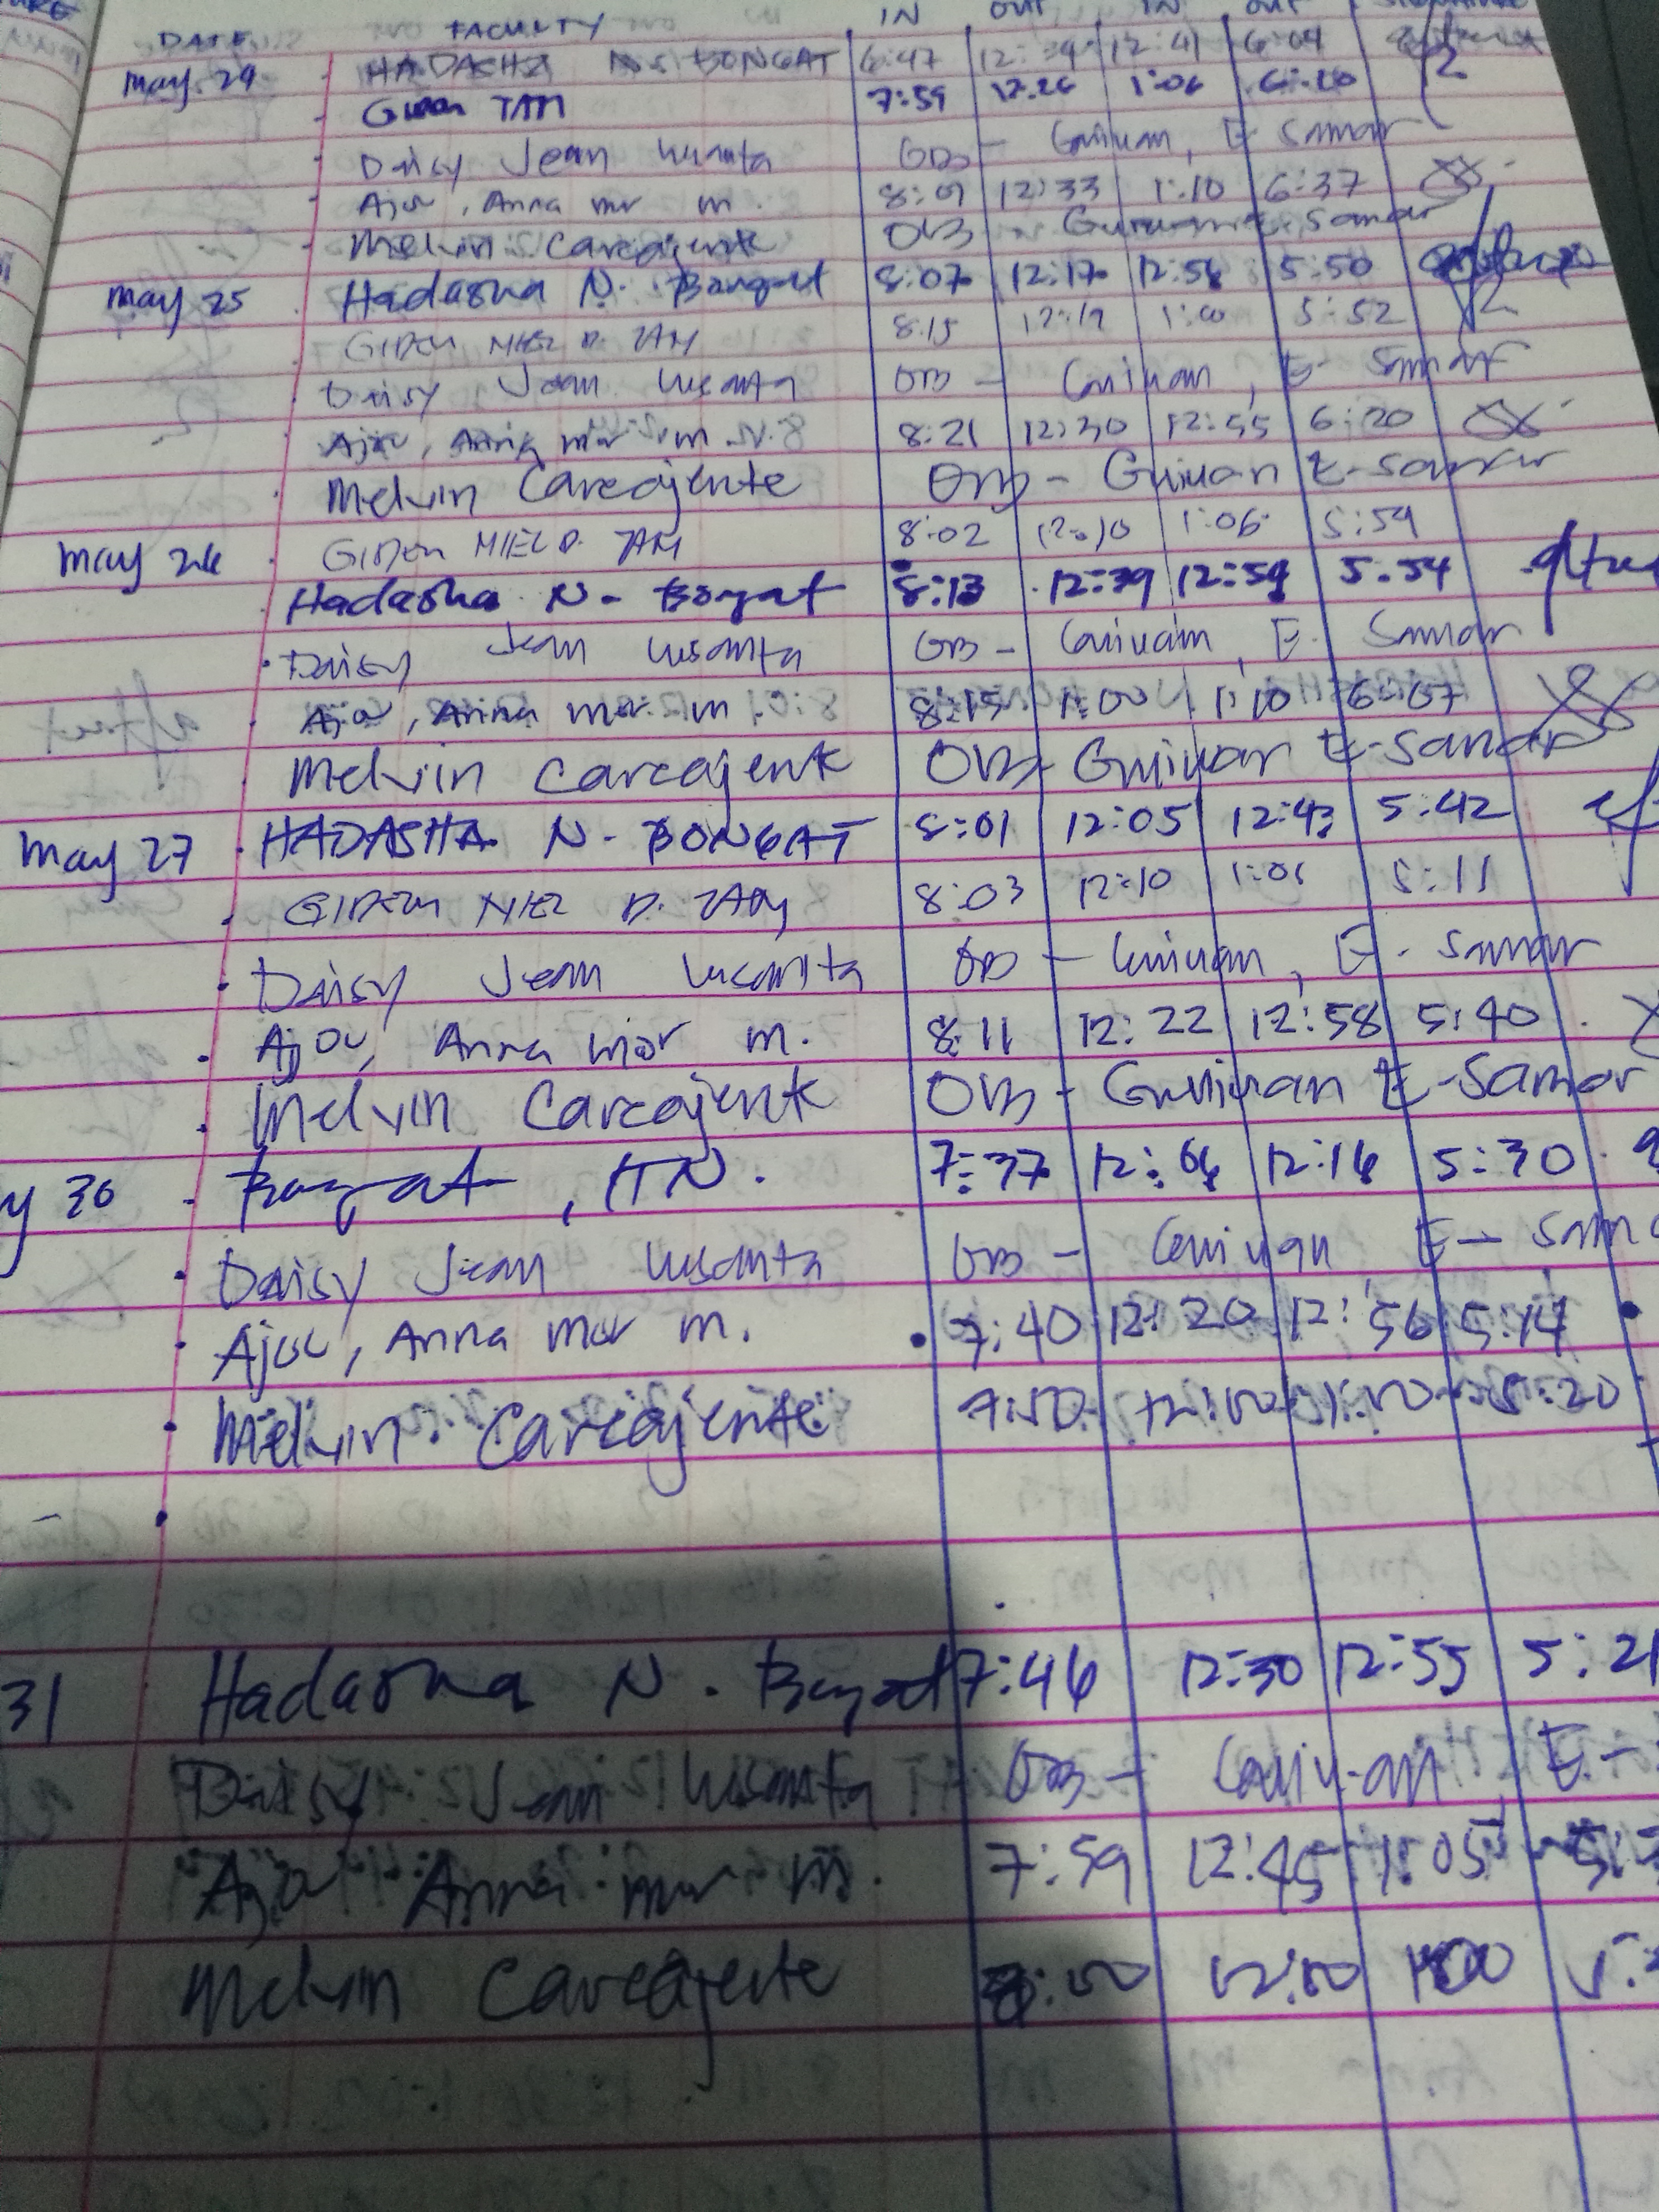 DATE FACULTY IN OUT IN OUT
May 29 HADASHA N. BONGAT 6:47 12:39 12:41 6:04
TAN 7:59 12:26 1:06 6:20
Daisy Jean OB - Guiuan, E. Samar
Ajou, Anna mor m. 8:09 12:33 1:10 6:37
Melvin Carcajente OB - Guiuan E. Samar
May 25 Hadasha N. Bongat 8:07 12:17 12:58 5:50
GIDEN NIEL D. TAN 8:15 12:19 1:00 5:52
Daisy Jean OB - Guiuan, E- Samar
Ajou, Anna mor m. 8:21 12:30 12:55 6:20
Melvin Carcajente OB - Guiuan E-Samar
May 26 GIDEN NIEL D. TAN 8:02 12:10 1:06 5:59
Hadasha N. Bongat 8:13 12:39 12:59 5:54
Daisy Jean OB - Guiuan, E. Samar
Ajou, Anna mor m. 8:15 1:00 1:10 6:07
Melvin Carcajente OB - Guiuan E-Samar
May 27 HADASHA N. BONGAT 8:01 12:05 12:43 5:42
GIDEN NIEL D. TAN 8:03 12:10 5:11
Daisy Jean OB - Guiuan, E. Samar
Ajou, Anna mor m. 8:11 12:22 12:58 5:40
Melvin Carcajente OB - Guiuan E-Samar
y 30 Bongat, HN. 7:37 12:16 5:30
Daisy Jean OB - Guiuan, E- Sama
Ajou, Anna mor m. 7:40 12:20 12:56 5:14
Melvin Carcajente 7:50 12:00 1:00 5:20
31 Hadasha N. Bongat 7:46 12:30 12:55 5:21
Daisy Jean OB - Guiuan, E-
Ajou Anna mor m. 7:59 12:45 1:05 5:
Melvin Carcajente 8:00 12:00 1:00 5: